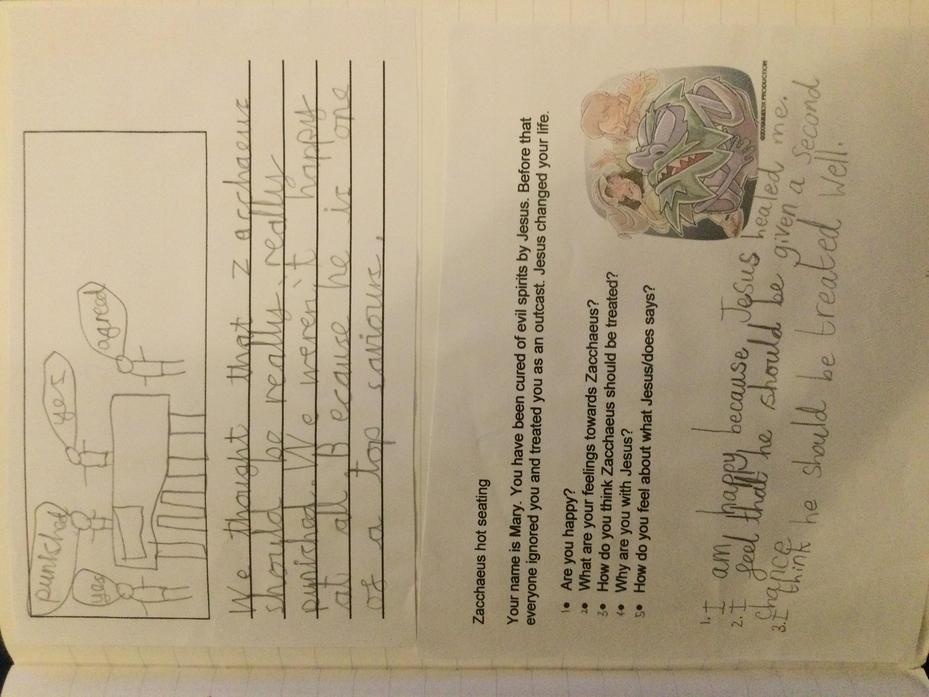 punkished
yes
yes
agread
We thought that Zacchaeus
should be really, really
punished. We weren,t happy
at all Because he is one
of a top saviours.
Zacchaeus hot seating
Your name is Mary. You have been cured of evil spirits by Jesus. Before that
everyone ignored you and treated you as an outcast. Jesus changed your life.
1• Are you happy?
2• What are your feelings towards Zacchaeus?
3• How do you think Zacchaeus should be treated?
4• Why are you with Jesus?
5• How do you feel about what Jesus/does says?
1. I am happy because Jesus healed me.
2. I feel that he should be given a second
chance
3. I think he should be treated well.